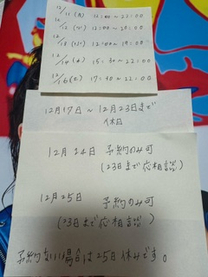 12/11 (月) 12:00〜22:00
12:00〜
12:00〜
12/14 (木) 〜22:00
12/16 (土) 〜22:00
12月17日〜12月23日まで
休日
12月24日 予約のみ可
(23日まで応相談)
12月25日 予約のみ可
(23日まで応相談)
予約ない場合は25日休みです。